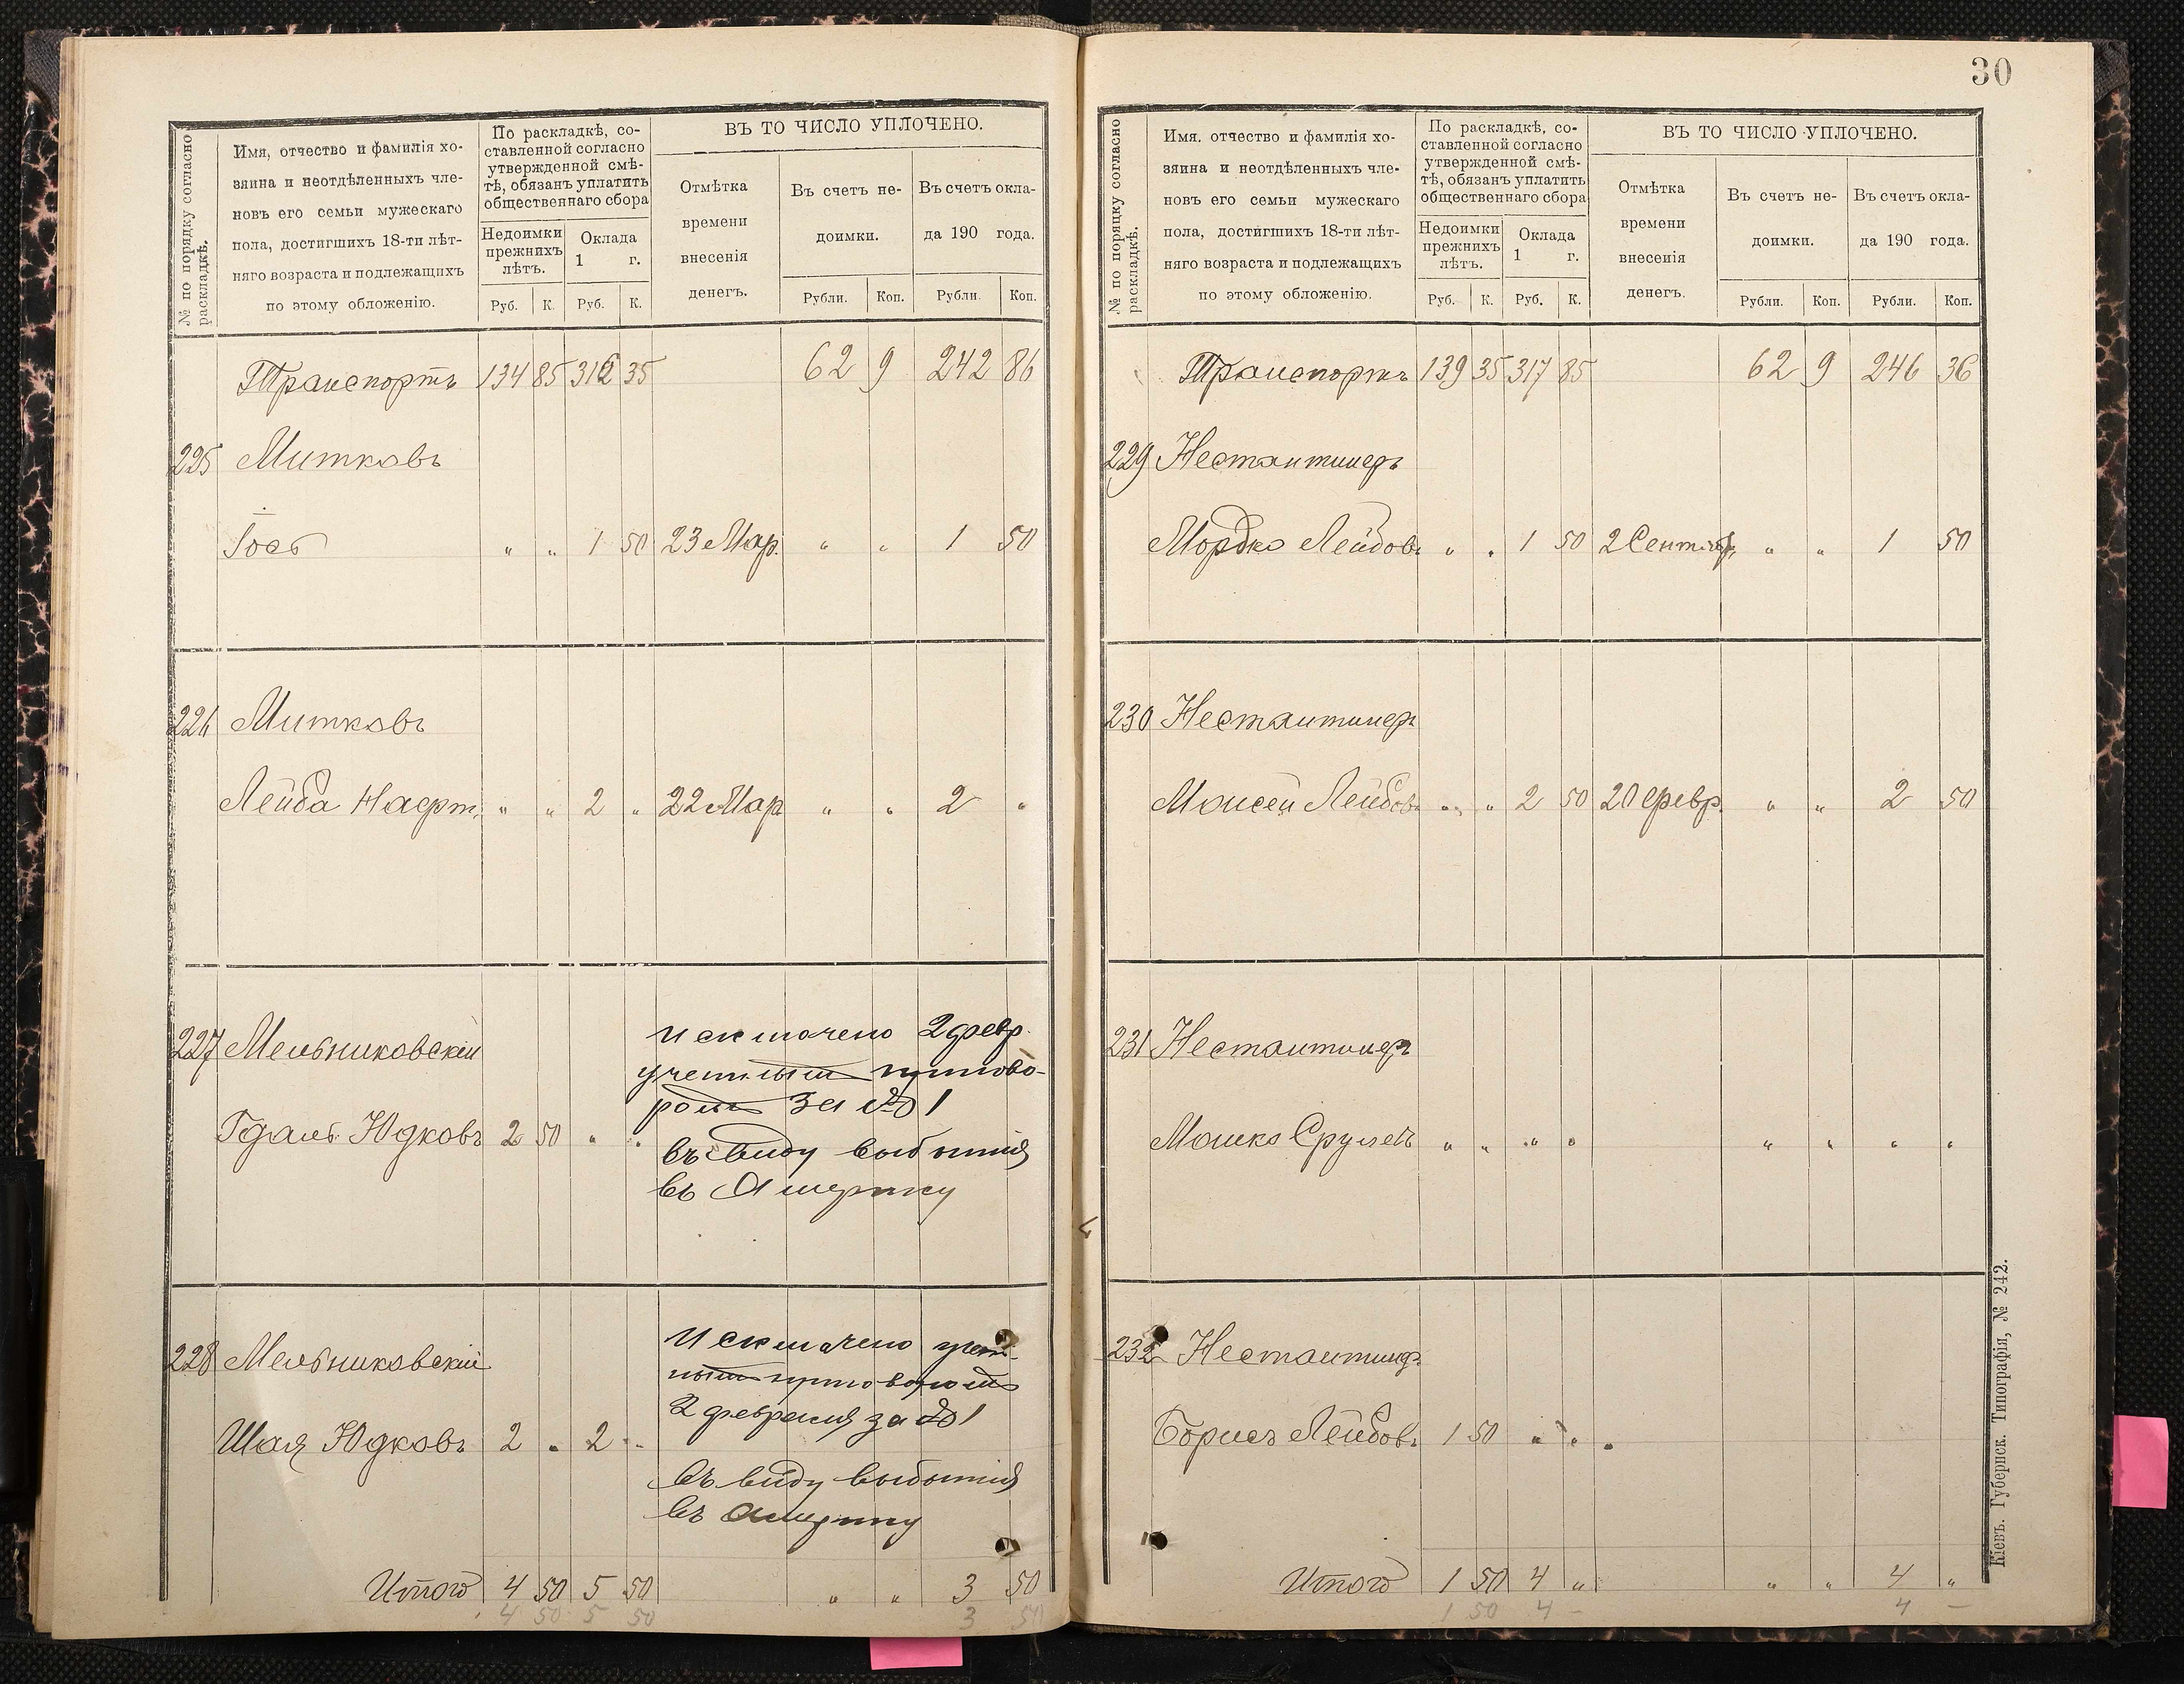 № по порядку согласно раскладкѣ.
Имя, отчество и фамилія хо-
зяина и неотдѣленныхъ чле-
новъ его семьи мужескаго
пола, достигшихъ 18-ти лѣт-
няго возраста и подлежащихъ
по этому обложенію.
По раскладкѣ, со-
ставленной согласно
утвержденной смѣ-
тѣ, обязанъ уплатить
общественнаго сбора
Недоимки
прежнихъ
лѣтъ.
Оклада
1 г.
Руб. К. Руб. К.
ВЪ ТО ЧИСЛО УПЛОЧЕНО.
Отмѣтка
времени
внесенія
денегъ.
Въ счетъ не-
доимки.
Въ счетъ окла-
да 190 года.
Рубли. Коп. Рубли. Коп.
Транспортъ 134 85 312 35 62 9 242 86
225 Митковъ
Іось " " 1 50 23 Мар. " " 1 50
226 Митковъ
Лейба " " 2 " 22 Мар " " 2 "
227 Мельниковскій
Гдаль Юдковъ 2 50 " "
Исключено 2 февр.
учетнымъ пригово-
ромъ за № 1
въ виду выбытія
въ Америку
228 Мельниковскій
Шая Юдковъ 2 " 2 "
Исключено учет-
нымъ приговоромъ
2 февраля за № 1
въ виду выбытія
въ Америку
Итого 4 50 5 50 " " 3 50
4 50 5 50 3 50
30
№ по порядку согласно раскладкѣ.
Имя, отчество и фамилія хо-
зяина и неотдѣленныхъ чле-
новъ его семьи мужескаго
пола, достигшихъ 18-ти лѣт-
няго возраста и подлежащихъ
по этому обложенію.
По раскладкѣ, со-
ставленной согласно
утвержденной смѣ-
тѣ, обязанъ уплатить
общественнаго сбора
Недоимки
прежнихъ
лѣтъ.
Оклада
1 г.
Руб. К. Руб. К.
ВЪ ТО ЧИСЛО УПЛОЧЕНО.
Отмѣтка
времени
внесенія
денегъ.
Въ счетъ не-
доимки.
Въ счетъ окла-
да 190 года.
Рубли. Коп. Рубли. Коп.
Транспортъ 139 35 317 85 62 9 246 36
229 Нестантинеръ
Мордко Лейбовъ " " 1 50 2 Сентябр. " " 1 50
230 Нестантинеръ
Моисей Лейбовъ " " 2 50 20 февр. " " 2 50
231 Нестантинеръ
Мошко Срулевъ " " " " " " " "
232 Нестантинеръ
Борисъ Лейбовъ 1 50 " "
Итого 1 50 4 " " " 4 "
1 50 4 – 4 –
Кіевъ. Губернск. Типографія, № 242.